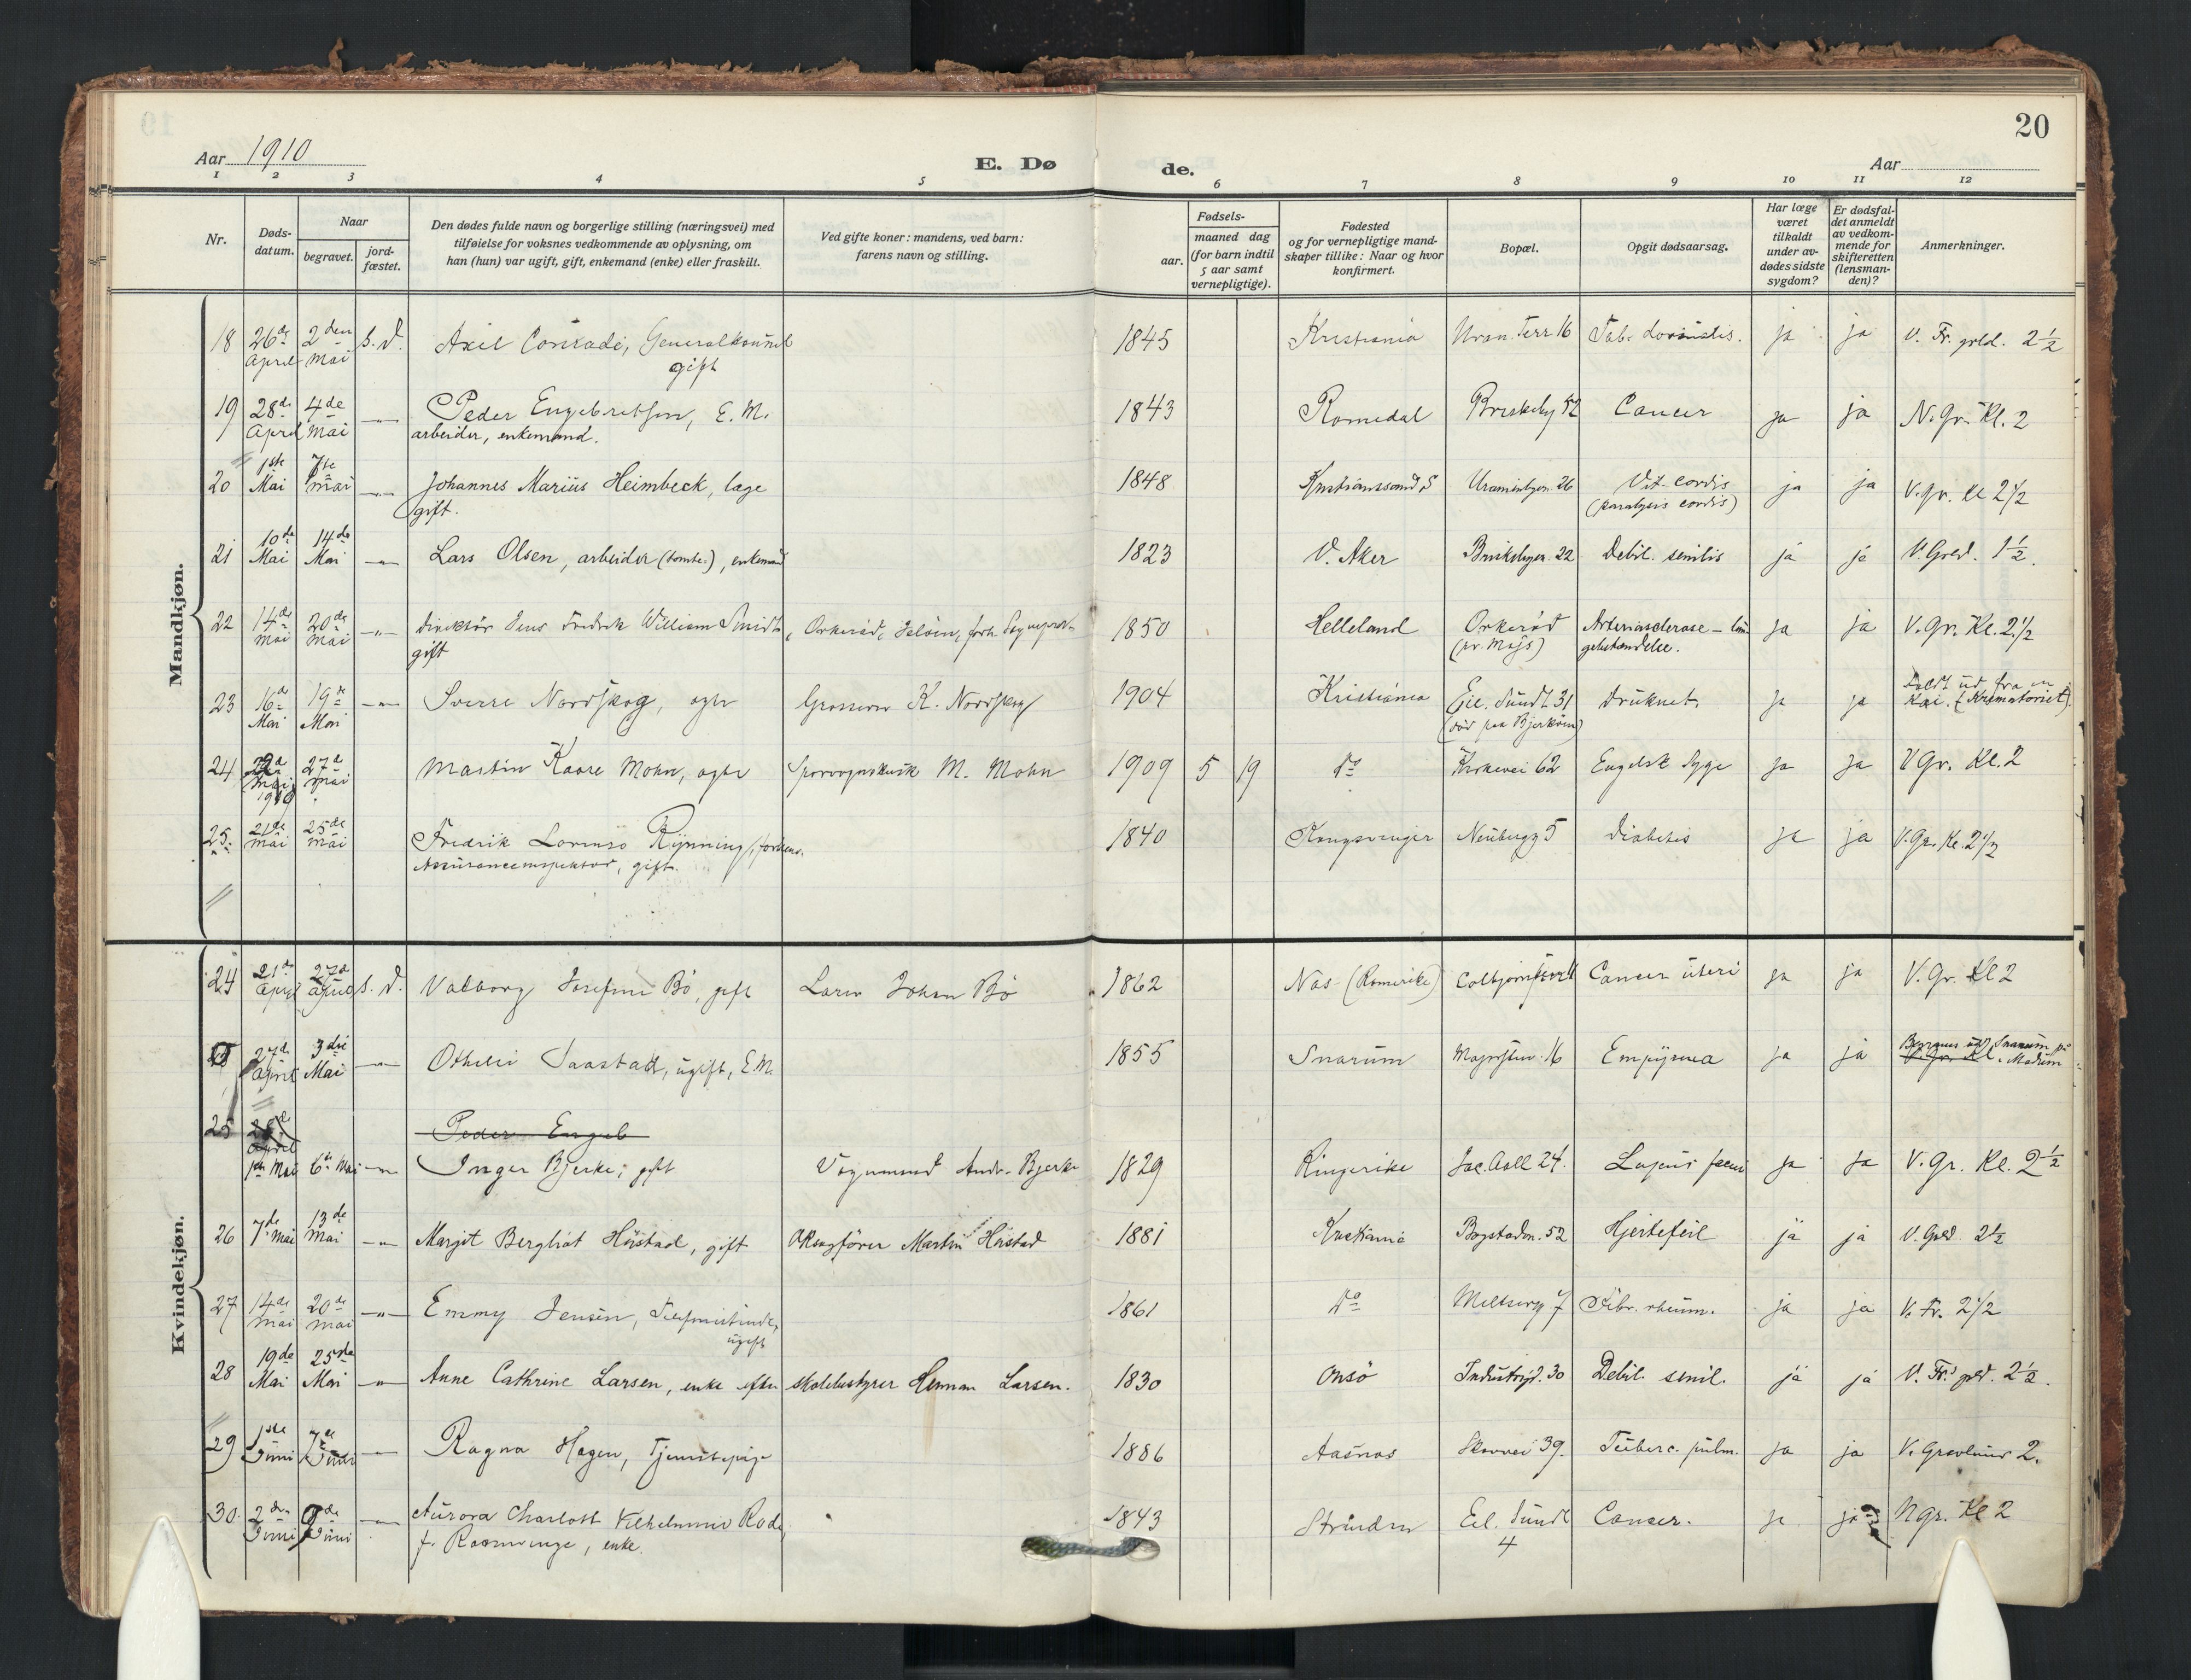 20
Aar 1910
E. Dø
de.
Aar
1 2 3 4 5 6 7 8 9 10 11 12
Nr.
Døds-
datum.
Naar
begravet.
jord-
fæstet.
Den dødes fulde navn og borgerlige stilling (næringsvei) med
tilføielse for voksnes vedkommende av oplysning, om
han (hun) var ugift, gift, enkemand (enke) eller fraskilt.
Ved gifte koner: mandens, ved barn:
farens navn og stilling.
Fødsels-
aar.
maaned dag
(for barn indtil
5 aar samt
vernepligtige).
Fødested
og for vernepligtige mand-
skaper tillike: Naar og hvor
konfirmert.
Bopæl.
Opgit dødsaarsag.
Har læge
været
tilkaldt
under av-
dødes sidste
sygdom?
Er dødsfal-
det anmeldt
av vedkom-
mende for
skifteretten
(lensman-
den)?
Anmerkninger.
Mandkjøn.
18 26de April 2den Mai S. D. Axel Conradi, Generalkonsul
gift
1845 Kristiania Uran. Terr 16 Tab. dorsualis. ja ja V. Fr. grld. 2½
19 28de April 4de Mai Peder Engebretsen, E. M.
arbeider, enkemand.
1843 Romedal Briskeby 52 Cancer ja ja N. Gr. Kl. 2
20 1ste Mai 7de Mai Johannes Marius Heimbeck, læge
gift.
1848 Kristianssand S Uranienbgvn. 26 Vit. cordis
(paralysis cordis)
ja ja V. gr. Kl 2½
21 10de Mai 14de Mai Lars Olsen, arbeider (tomte.), enkemand
1823 V. Aker Briskebyvn. 22 Debil. senilis ja ja V. Grld. 1½.
22 14de Mai 20de Mai Direktör Jens Fredrik William Smidt, Orkeröd, Jelöen, forh. Sogneprest
gift
1850 Helleland Orkeröd
(pr. Moss)
Arteriosclerose - lun
gebetændelse.
ja ja V. Gr. Kl. 2½
23 16de Mai 19de Mai Sverre Nordskog, egte Grosserer K. Nordskog
1904 Kristiania Eil. Sundt 31
(död paa Bjerköen)
druknet. ja ja Faldt ud fra en
Kai. (Krematoriet).
24 Mai 1910 27de Mai Martin Kaare Mohn, egte Sporvognskusk M. Mohn
1909 5 19 do Kirkevei 62 Engelsk Syge ja ja V Gr. Kl. 2
25. 21de Mai 25de Mai Fredrik Lorenso Rynning, forhenv.
Assuranceinspektør, gift.
1840 Kongsvinger Neubergg 5 Diabetes ja ja V. Gr. Kl. 2½
Kvindekjøn.
24 21de April 27de April S. D. Valborg Josefine Bö, gift Larer Johan Bö
1862 Nas (Romerike) Colbjörnsens Cancer uteri ja ja V. Gr. Kl 2
27de April 3die Mai Othelie Saastad, ugift, E.M.
1855 Snarum Majorstuv. 16 Empyema ja ja Begraves ved Snarum pr.
V. Gr. Kl. Modum
25 28de April
Peder Engeb
1ste Mai 6te Mai Inger Bjerke, gift Vognmand Andr. Bjerke
1829 Ringerike Jac. Aall 24. Lupus faciei ja ja V. Gr. Kl. 2½
26 7de Mai 13de Mai Margit Bergliot Höistad, gift Aktugförer Martin Höistad
1881 Kristiania Bogstadvn. 52 Hjertefeil ja ja V. Grld 2½
27 14de Mai 20de Mai Emmy Jensen, Telefonistinde,
ugift
1861 do Meltzerg 7 Febr. rheum. ja ja V. Fr. 2½
28 19de Mai 25de Mai Anne Cathrine Larsen, enke efter skolebestyrer Herman Larsen.
1830 Onsö Industrigd. 30 Debil. senil. ja ja V. Fr. grld. 2½.
29 1ste Juni 7de Juni Ragna Hagen, Tjenestepige
1886 Aasnas Skovvei 39. Tuberc. pulm. ja ja V. Gravlund 2.
30. 2den Juni Juni Aurora Charlott Vilhelmine Rode,
f. enke.
1843 Strinden Eil. Sundt
4
Cancer. ja ja N gr. Kl 2